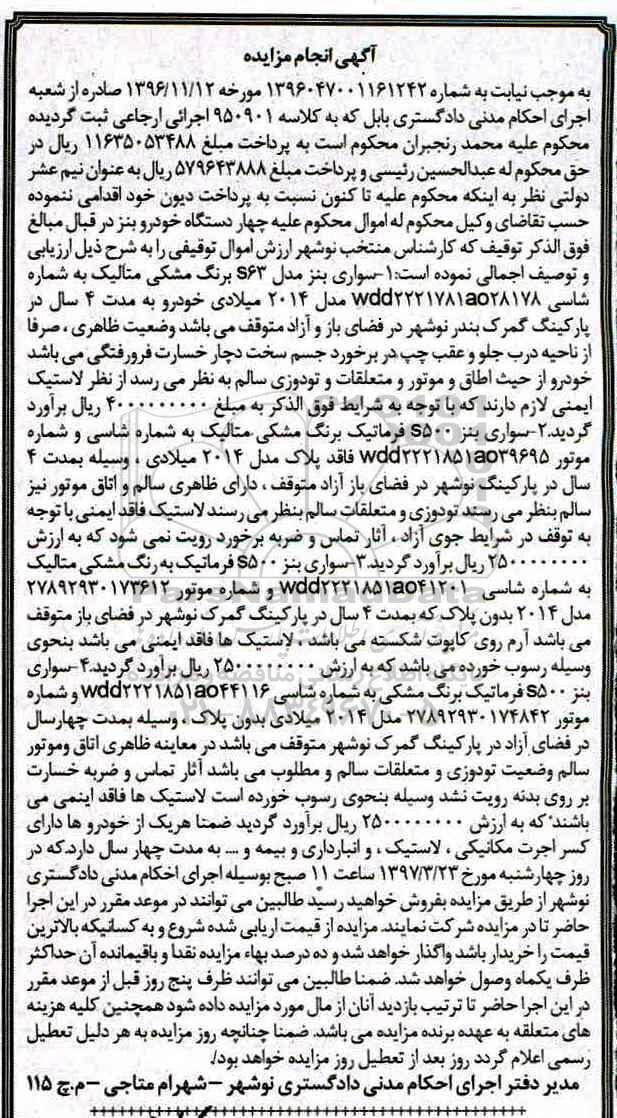 آگهی انجام مزایده
به موجب نیابت به شماره ۱۳۹۶۰۴۷۰۰۱۱۶۱۲۴۲ مورخه ۱۳۹۶/۱۱/۱۲ صادره از شعبه
اجرای احکام مدنی دادگستری بابل که به کلاسه ۹۵۰۹۰۱ اجرائی ارجاعی ثبت گردیده
محکوم علیه محمد رنجبران محکوم است به پرداخت مبلغ ۱۱۶۳۵۰۵۳۴۸۸ ریال در
حق محکوم له عبدالحسین رئیسی و پرداخت مبلغ ۵۷۹۶۴۳۸۸۸ ریال به عنوان نیم عشر
دولتی نظر به اینکه محکوم علیه تا کنون نسبت به پرداخت دیون خود اقدامی ننموده
حسب تقاضای وکیل محکوم له اموال محکوم علیه چهار دستگاه خودرو بنز در قبال مبالغ
فوق الذکر توقیف که کارشناس منتخب نوشهر ارزش اموال توقیفی را به شرح ذیل ارزیابی
و توصیف اجمالی نموده است:۱-سواری بنز مدل s۶۳ برنگ مشکی متالیک به شماره
شاسی wdd۲۲۲۱۷۸۱a۰۲۸۱۷۸ مدل ۲۰۱۴ میلادی خودرو به مدت ۴ سال در
پارکینگ گمرک بندر نوشهر در فضای باز و آزاد متوقف می باشد وضعیت ظاهری ، صرفا
از ناحیه درب جلو و عقب چپ در برخورد جسم سخت دچار خسارت فرورفتگی می باشد
خودرو از حیث اطاق و موتور و متعلقات و تودوزی سالم به نظر می رسد از نظر لاستیک
ایمنی لازم دارند که با توجه به شرایط فوق الذکر به مبلغ ۴۰۰۰۰۰۰۰۰۰ ریال برآورد
گردید.۲-سواری بنز s۵۰۰ فرماتیک برنگ مشکی متالیک به شماره شاسی و شماره
موتور wdd۲۲۲۱۸۵۱a۰۳۹۶۹۵ فاقد پلاک مدل ۲۰۱۴ میلادی ، وسیله بمدت ۴
سال در پارکینگ نوشهر در فضای باز آزاد متوقف ، دارای ظاهری سالم و اتاق موتور نیز
سالم بنظر می رسند تودوزی و متعلقات سالم بنظر می رسند لاستیک فاقد ایمنی با توجه
به توقف در شرایط جوی آزاد ، آثار تماس و ضربه برخورد رویت نمی شود که به ارزش
۲۵۰۰۰۰۰۰۰۰ ریال برآورد گردید.۳-سواری بنز s۵۰۰ فرماتیک به رنگ مشکی متالیک
به شماره شاسی wdd۲۲۲۱۸۵۱a۰۴۱۲۰۱ و شماره موتور ۲۷۸۹۲۹۳۰۱۷۳۶۱۲
مدل ۲۰۱۴ بدون پلاک که بمدت ۴ سال در پارکینگ گمرک نوشهر در فضای باز متوقف
می باشد آرم روی کاپوت شکسته می باشد ، لاستیک ها فاقد ایمنی می باشد بنحوی
وسیله رسوب خورده می باشد که به ارزش ۲۵۰۰۰۰۰۰۰۰ ریال برآورد گردید.۴-سواری
بنز s۵۰۰ فرماتیک برنگ مشکی به شماره شاسی wdd۲۲۲۱۸۵۱a۰۴۴۱۱۶ و شماره
موتور ۲۷۸۹۲۹۳۰۱۷۴۸۴۲ مدل ۲۰۱۴ میلادی بدون پلاک ، وسیله بمدت چهارسال
در فضای آزاد در پارکینگ گمرک نوشهر متوقف می باشد در معاینه ظاهری اتاق وموتور
سالم وضعیت تودوزی و متعلقات سالم و مطلوب می باشد آثار تماس و ضربه خسارت
بر روی بدنه رویت نشد وسیله بنحوی رسوب خورده است لاستیک ها فاقد اینمی می
باشند که به ارزش ۲۵۰۰۰۰۰۰۰۰ ریال برآورد گردید ضمنا هریک از خودرو ها دارای
کسر اجرت مکانیکی ، لاستیک ، و انبارداری و بیمه و .... به مدت چهار سال دارد.که در
روز چهارشنبه مورخ ۱۳۹۷/۳/۲۳ ساعت ۱۱ صبح بوسیله اجرای احکام مدنی دادگستری
نوشهر از طریق مزایده بفروش خواهید رسید طالبین می توانند در موعد مقرر در این اجرا
حاضر تا در مزایده شرکت نمایند. مزایده از قیمت اریابی شده شروع و به کسانیکه بالاترین
قیمت را خریدار باشد واگذار خواهد شد و ده درصد بهاء مزایده نقدا و باقیمانده آن حداکثر
ظرف یکماه وصول خواهد شد. ضمنا طالبین می توانند ظرف پنج روز قبل از موعد مقرر
در این اجرا حاضر تا ترتیب بازدید آنان از مال مورد مزایده داده شود همچنین کلیه هزینه
های متعلقه به عهده برنده مزایده می باشد. ضمنا چنانچه روز مزایده به هر دلیل تعطیل
رسمی اعلام گردد روز بعد از تعطیل روز مزایده خواهد بود/.
مدیر دفتر اجرای احکام مدنی دادگستری نوشهر -شهرام متاجی -م.چ ۱۱۵